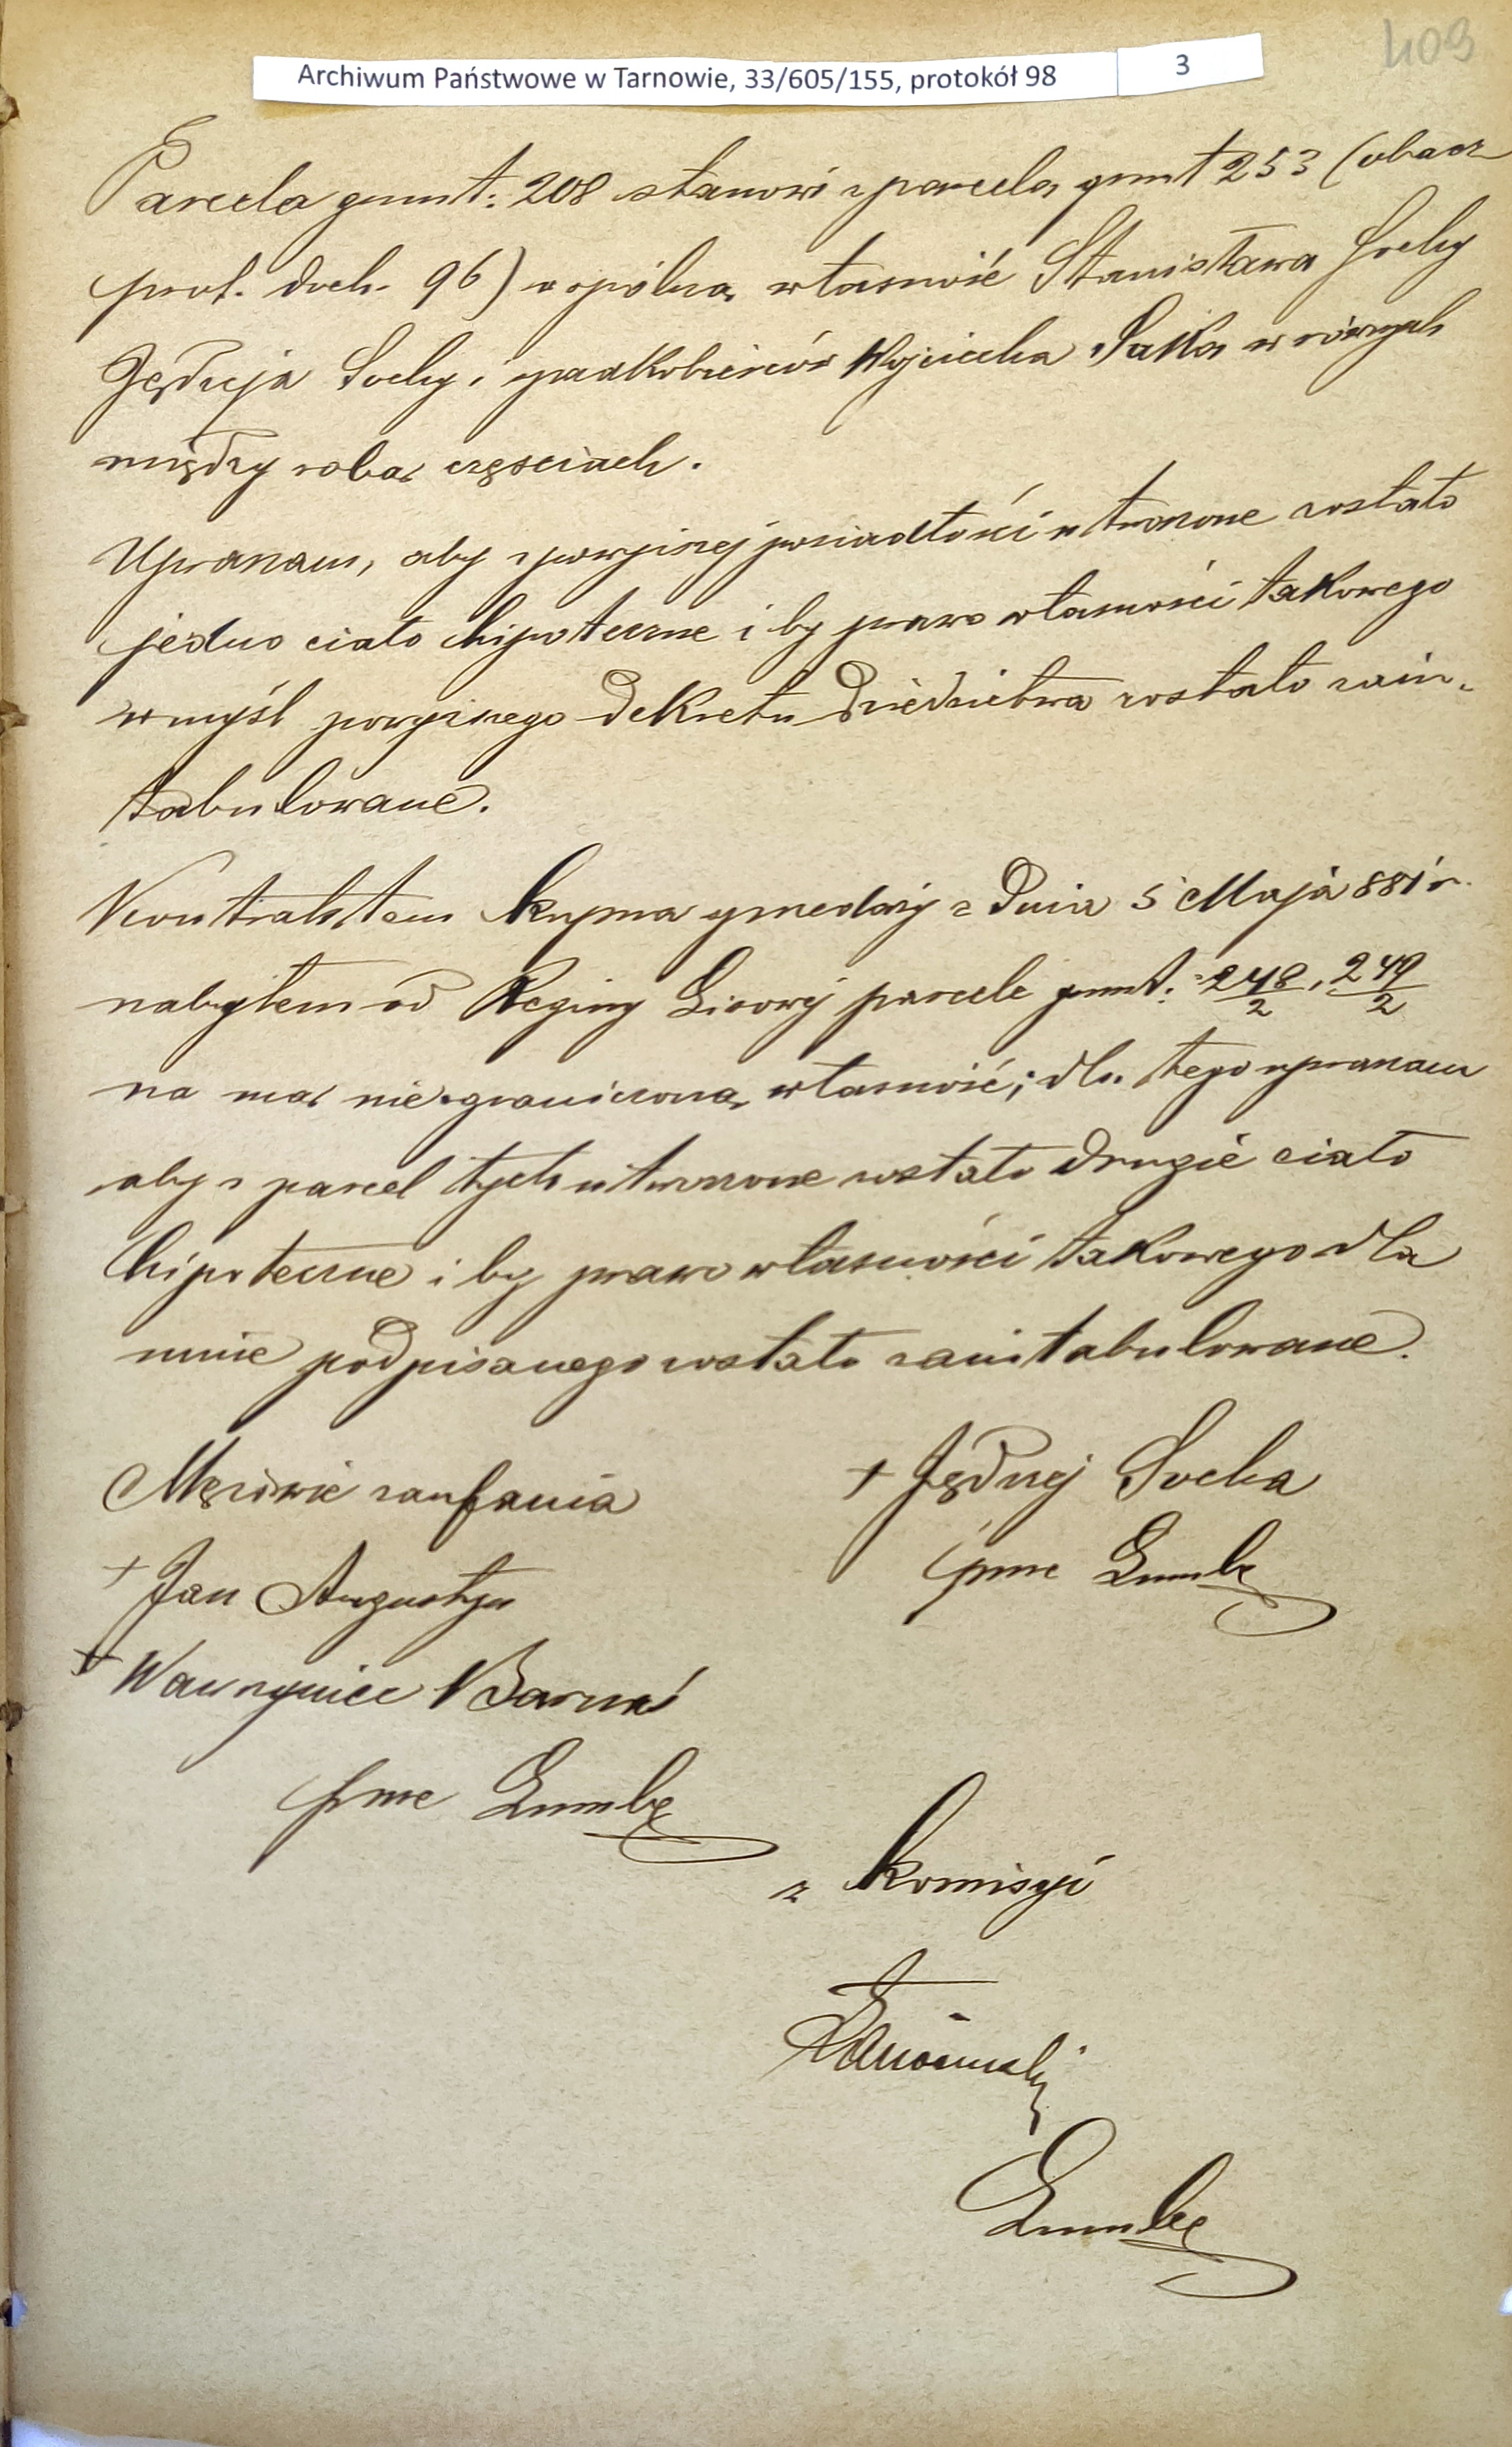 409
Archiwum Państwowe w Tarnowie, 33/605/155, protokół 98 3
Parcela gmnt: 208 stanowi z parcelą grunt 253 (obacz
prot. doch. 96) wspólną własność Stanisława Sochy
Jędrzeja Sochy i spadkobierców Wojciecha Saka w równych
między sobą częściach.
Upraszam, aby z powyższej posiadłości utworzone zostało
jedno ciało hipoteczne i by prawo własności takowego
w myśl powyższego dekretu dziedzictwa zostało zain-
tabulowane.
Kontraktem kupna sprzedaży z dnia 5 Maja 881 r.
nabyłem od Reginy parcele grunt: 248/2, 249/2
na mą nieograniczoną własność; dla tego upraszam
aby z parcel tych utworzone zostało drugie ciało
hipoteczne i by prawo własności takowego dla
mnie podpisanego zostało zaintabulowane.
Mężowie zaufania
+ Jędrzej Socha
+ Jan Augustyn
+ Wawrzyniec
z komisyi